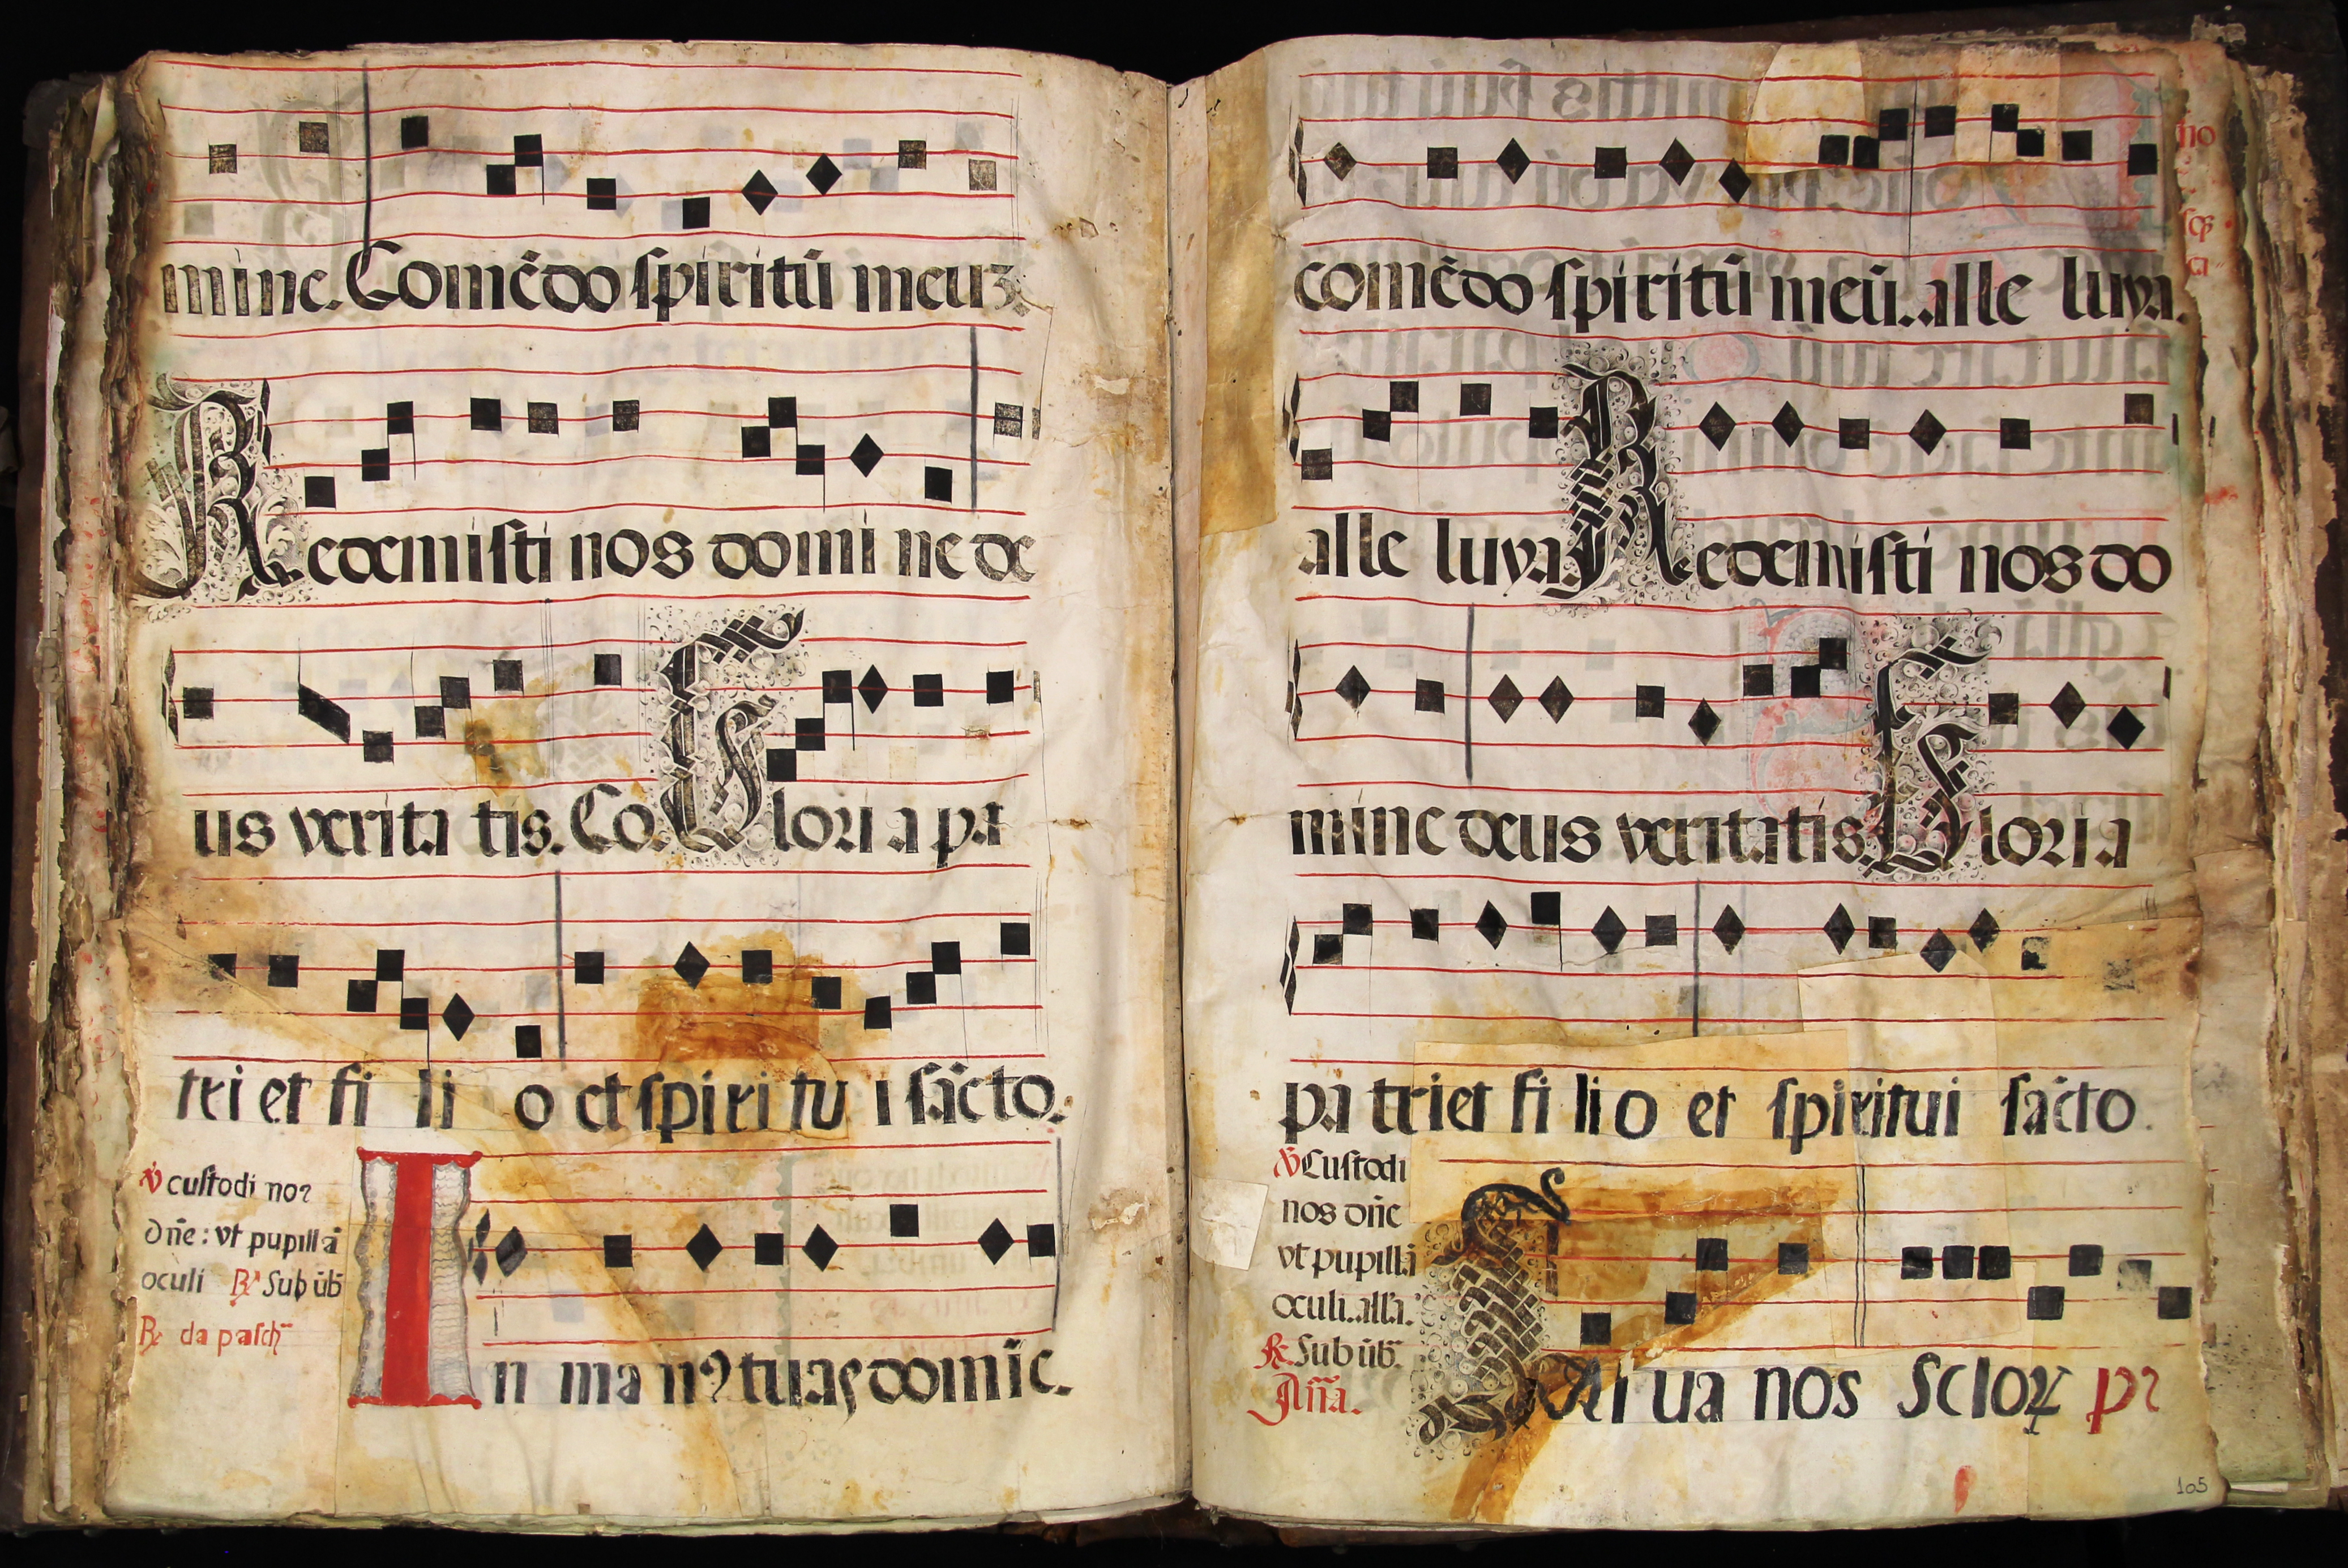 mine. Comẽdo spiritũ meuʒ
Redemisti nos domi ne de
us verita tis. Co. Glori a pa
tri et fi li o et spiri tu i sãcto.
℣ custodi nos
dñe: vt pupillã
oculi ℟ Sub ũb̃
℟ da pasch̃
In ma nꝰ tuas domĩe.
comẽdo spiritũ meũ. alle luya.
alle luya. Redemisti nos do
mine deus veritatis. Gloria
pa tri et fi li o et spiritui sãcto.
℣ Custodi
nos dñe
vt pupillã
oculi. all'a.
℟ Sub ũb̃.
Añã.
Salua nos
105